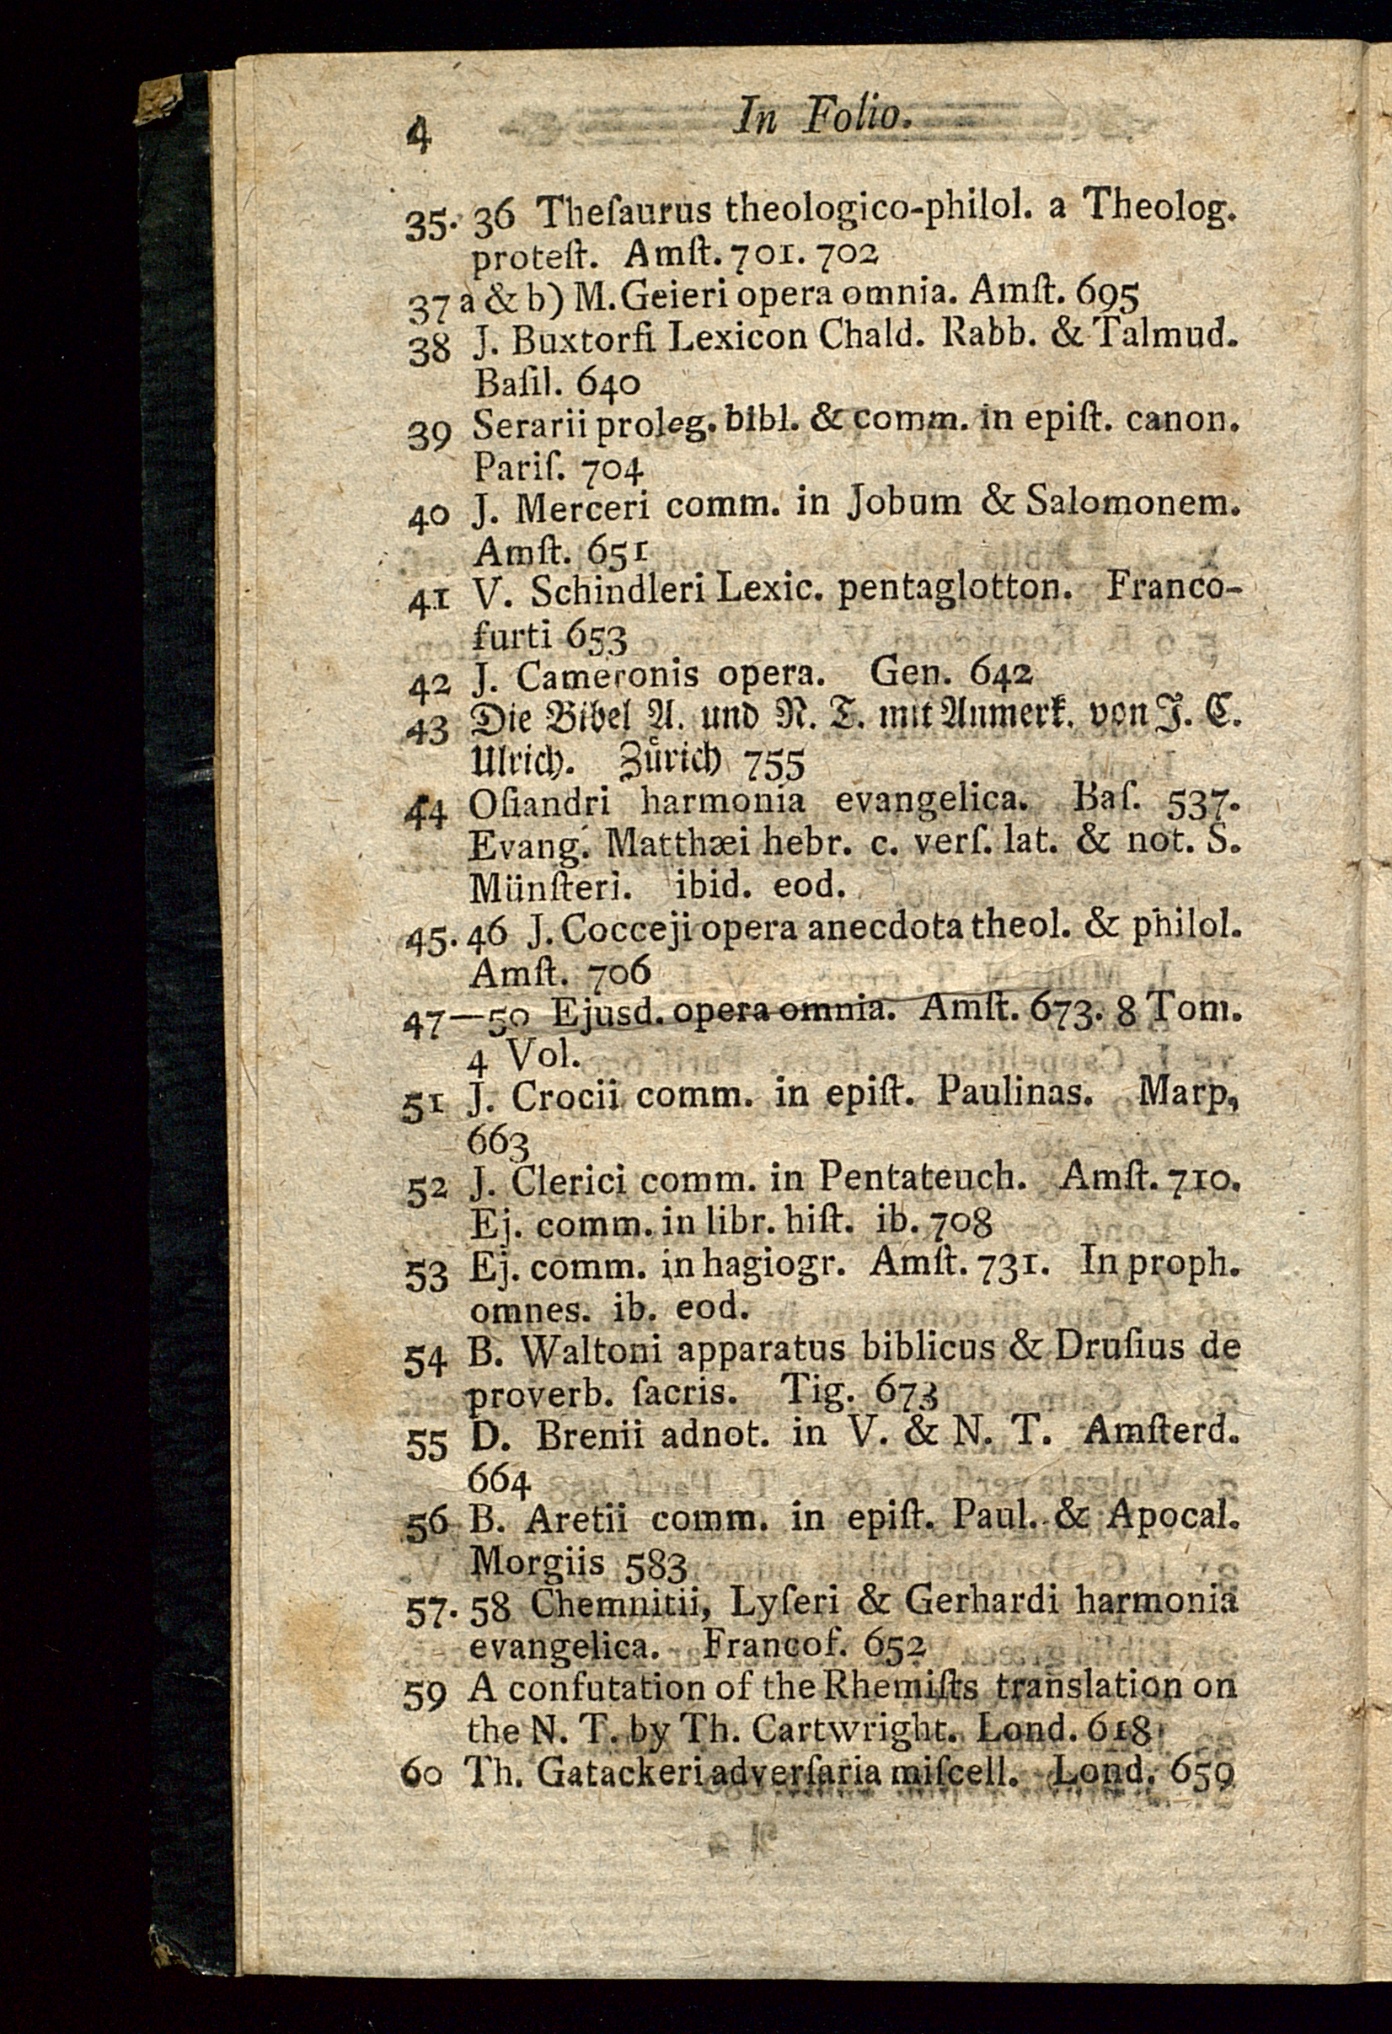 4
In Folio.
35. 36 Theſaurus theologico-philol. a Theolog.
proteſt. Amſt. 701. 702
37 a & b) M. Geieri opera omnia. Amſt. 695
38 J. Buxtorfi Lexicon Chald. Rabb. & Talmud.
Baſil. 640
39 Serarii proleg. bibl. & comm. in epiſt. canon.
Pariſ. 704
40 J. Merceri comm. in Jobum & Salomonem.
Amſt. 651
41 V. Schindleri Lexic. pentaglotton. Franco-
furti 653
42 J. Cameronis opera. Gen. 642
43 Die Bibel A. und N. T. mit Anmerk. von J. C.
Ulrich. Zürich 755
44 Oſiandri harmonia evangelica. Baſ. 537.
Evang. Matthæi hebr. c. verſ. lat. & not. S.
Münſteri. ibid. eod.
45. 46 J. Cocceji opera anecdota theol. & philol.
Amſt. 706
47—50 Ejusd. opera omnia. Amſt. 673. 8 Tom.
4 Vol.
51 J. Crocii comm. in epiſt. Paulinas. Marp,
663
52 J. Clerici comm. in Pentateuch. Amſt. 710.
Ej. comm. in libr. hiſt. ib. 708
53 Ej. comm. in hagiogr. Amſt. 731. In proph.
omnes. ib. eod.
54 B. Waltoni apparatus biblicus & Druſius de
proverb. ſacris. Tig. 673
55 D. Brenii adnot. in V. & N. T. Amſterd.
664
56 B. Aretii comm. in epiſt. Paul. & Apocal.
Morgiis 583
57. 58 Chemnitii, Lyſeri & Gerhardi harmonia
evangelica. Francof. 652
59 A confutation of the Rhemiſts translation on
the N. T. by Th. Cartwright. Lond. 618
60 Th. Gatackeri adverſaria miſcell. Lond. 659